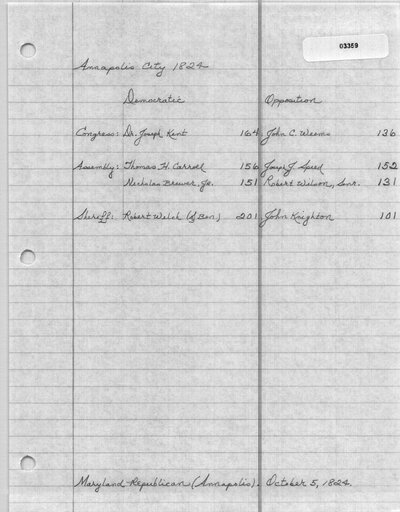 03359
Annapolis City 1824
Democratic Opposition
Congress: Dr. Joseph Kent 164 John C. Weems 136
Assembly: Thomas H. Carroll 156 Joseph J. Speed 152
Nicholas Brewer, Jr. 151 Robert Wilson, Senr. 131
Sheriff: Robert Welch (of Ben) 201 John Knighton 101
Maryland Republican (Annapolis). October 5, 1824.